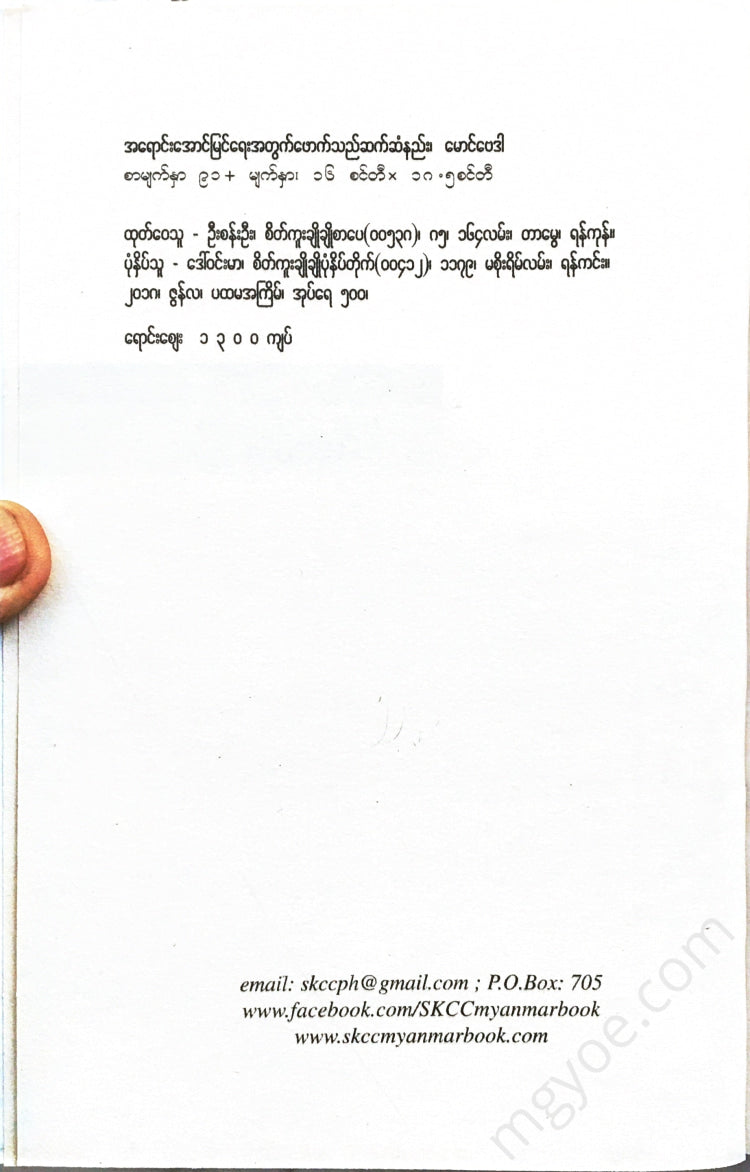 အရောင်းအောင်မြင်ရေးအတွက်ဖောက်သည်ဆက်ဆံနည်း၊ မောင်ဗေဒါ
စာမျက်နှာ ၉၁+ မျက်နှာ၊ ၁၆ စင်တီ× ၁၈.၅စင်တီ
ထုတ်ဝေသူ - ဦးစန်းဦး၊ စိတ်ကူးချိုချိုစာပေ(၀၀၅၃၈)၊ ၈၅၊ ၁၆၄လမ်း၊ တာမွေ၊ ရန်ကုန်။
ပုံနှိပ်သူ - ဒေါ်ဝင်းမာ၊ စိတ်ကူးချိုချိုပုံနှိပ်တိုက်(၀၀၄၁၂)၊ ၁၁၇၉၊ မစိုးရိမ်လမ်း၊ ရန်ကင်း။
၂၀၁၈၊ ဇွန်လ၊ ပထမအကြိမ်၊ အုပ်ရေ ၅၀၀၊
ရောင်းဈေး ၁ ၃ ၀ ၀ ကျပ်
email: skccph@gmail.com ; P.O.Box: 705
www.facebook.com/SKCCmyanmarbook
www.skccmyanmarbook.com
mgyoe.com